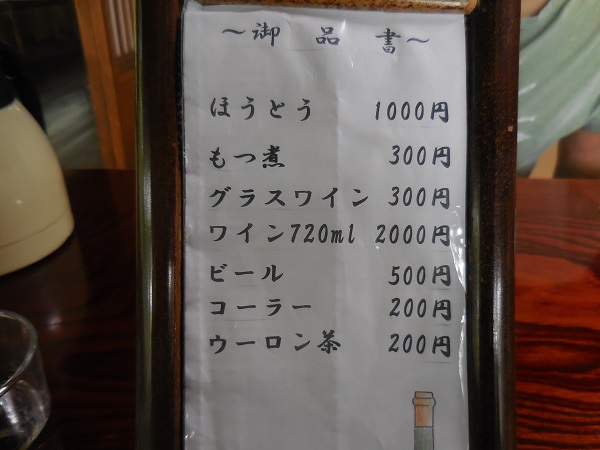 ～御 品 書～
ほうとう 1000円
もつ煮 300円
グラスワイン 300円
ワイン720ml 2000円
ビール 500円
コーラー 200円
ウーロン茶 200円